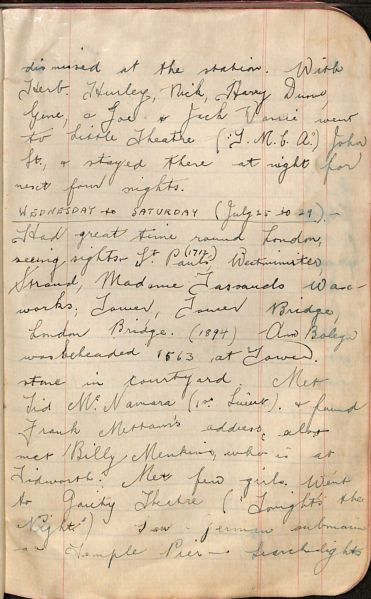 dismissed at the station. With
Herb, Hurley, Nick, Harry Dunne,
Gene, & Joe & Jack Varrie went
to Little Theatre ("Y.M.C.A.") John
St, & stayed there at night for
next four nights.
WEDNESDAY to SATURDAY (July 25 to 29). —
Had great time round London,
seeing sights. St Pauls, (1717) Westminster,
Strand, Madame Tassauds Wax-
works, Tower, Tower Bridge,
London Bridge. (1894) Ann Boleyn
was beheaded 1563 at Tower.
stone in courtyard. Met
Tid McNamara (1st Lieut). & found
Frank Mettam's address, also
met Billy Menkins, who is at
Tidworth. Met few girls. Went
to Gaiety Theatre ("Tonight's the
Night") Saw German submarine
at Temple Pier — Searchlights